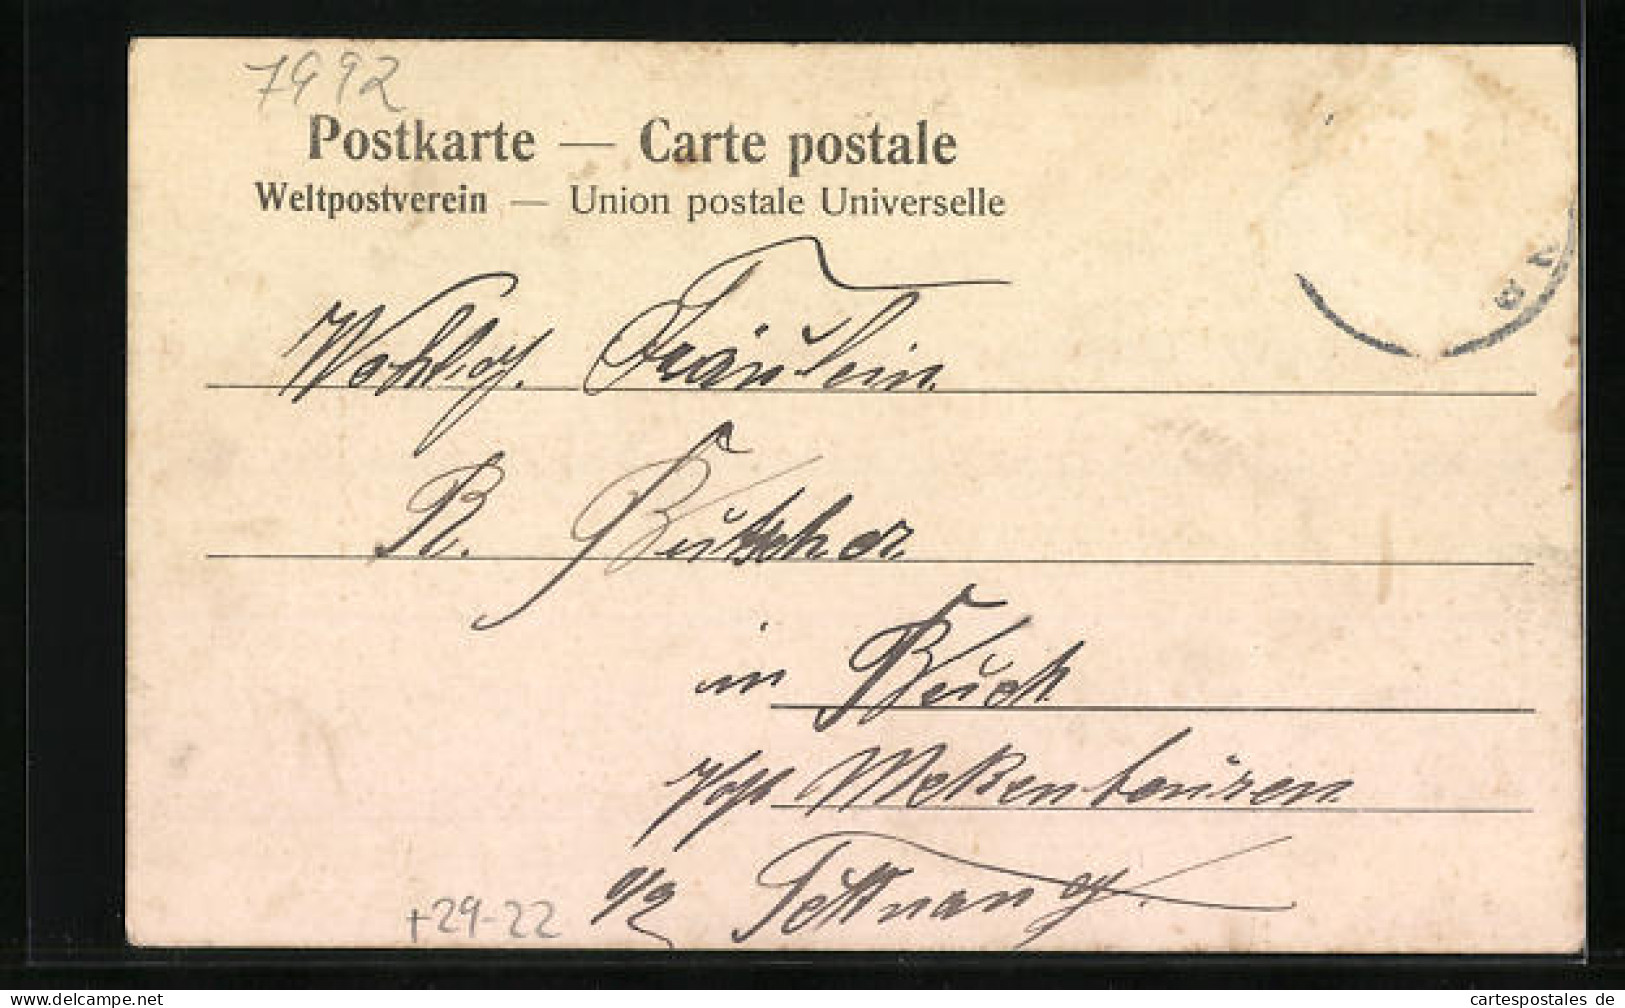 7992
Postkarte — Carte postale
Weltpostverein — Union postale Universelle
Wohlg. Fräulein
R.
in Buch
Meckenbeuren
Tettnang.
+29-22
www.ak-ansichtskarten.de
cartespostales de